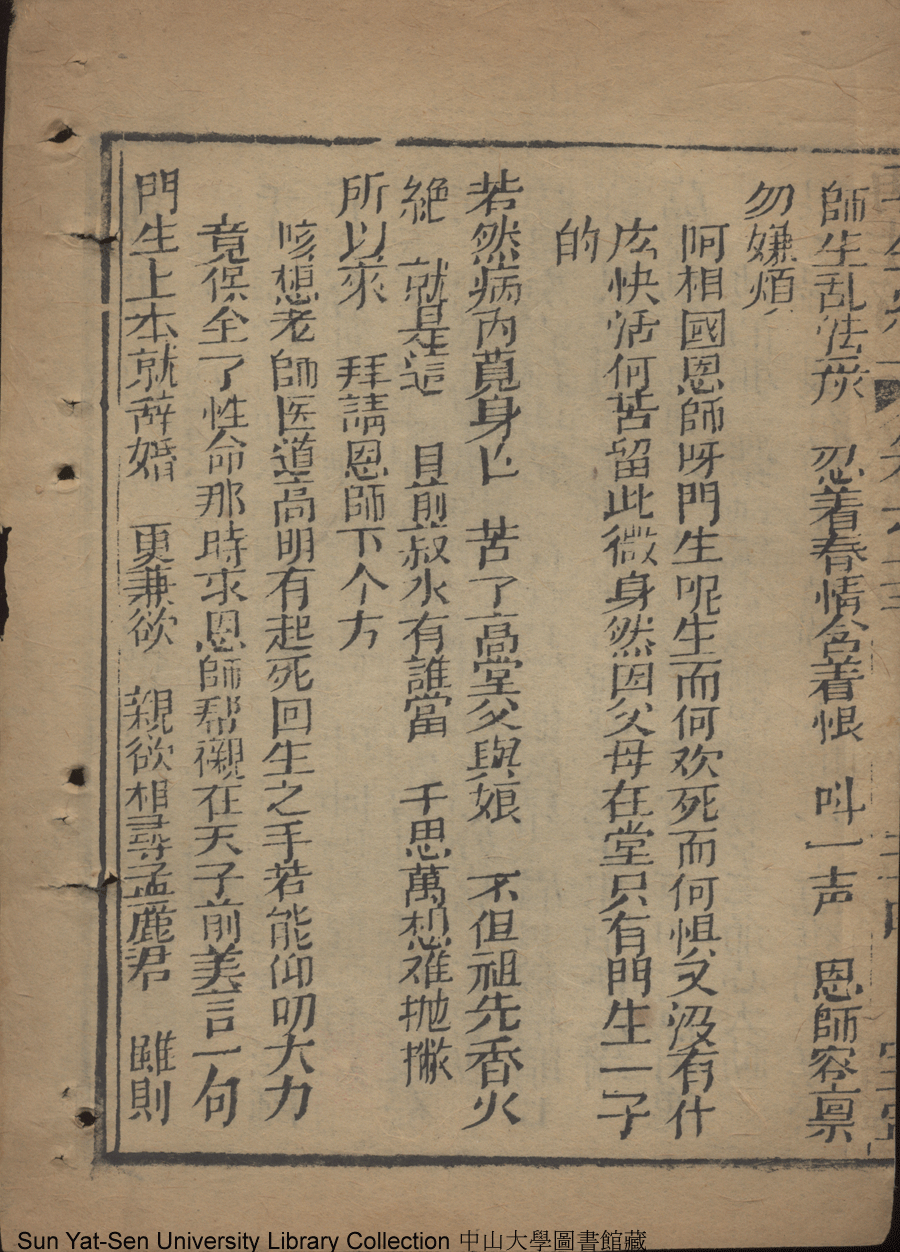 師生乱法疾　忍着春情含着恨　叫一声　恩師容禀
勿嫌煩
呵相國恩師呀門生呢生而何欢死而何惧又没有什
庅快活何苦留此微身然因父母在堂只有門生一子
的
若然病内竟身亡　苦了高堂父與娘　不但祖先香火
絶　就是這　目前菽水有誰當　千思萬想难抛撇
所以來　拜請恩師下个方
咳想老師医道高明有起死回生之手若能仰叨大力
竟保全了性命那時求恩師帮襯在天子前美言一句
門生上本就辞婚　更兼欲　親欲相尋孟麗君　雖則
Sun Yat-Sen University Library Collection 中山大學圖書館藏